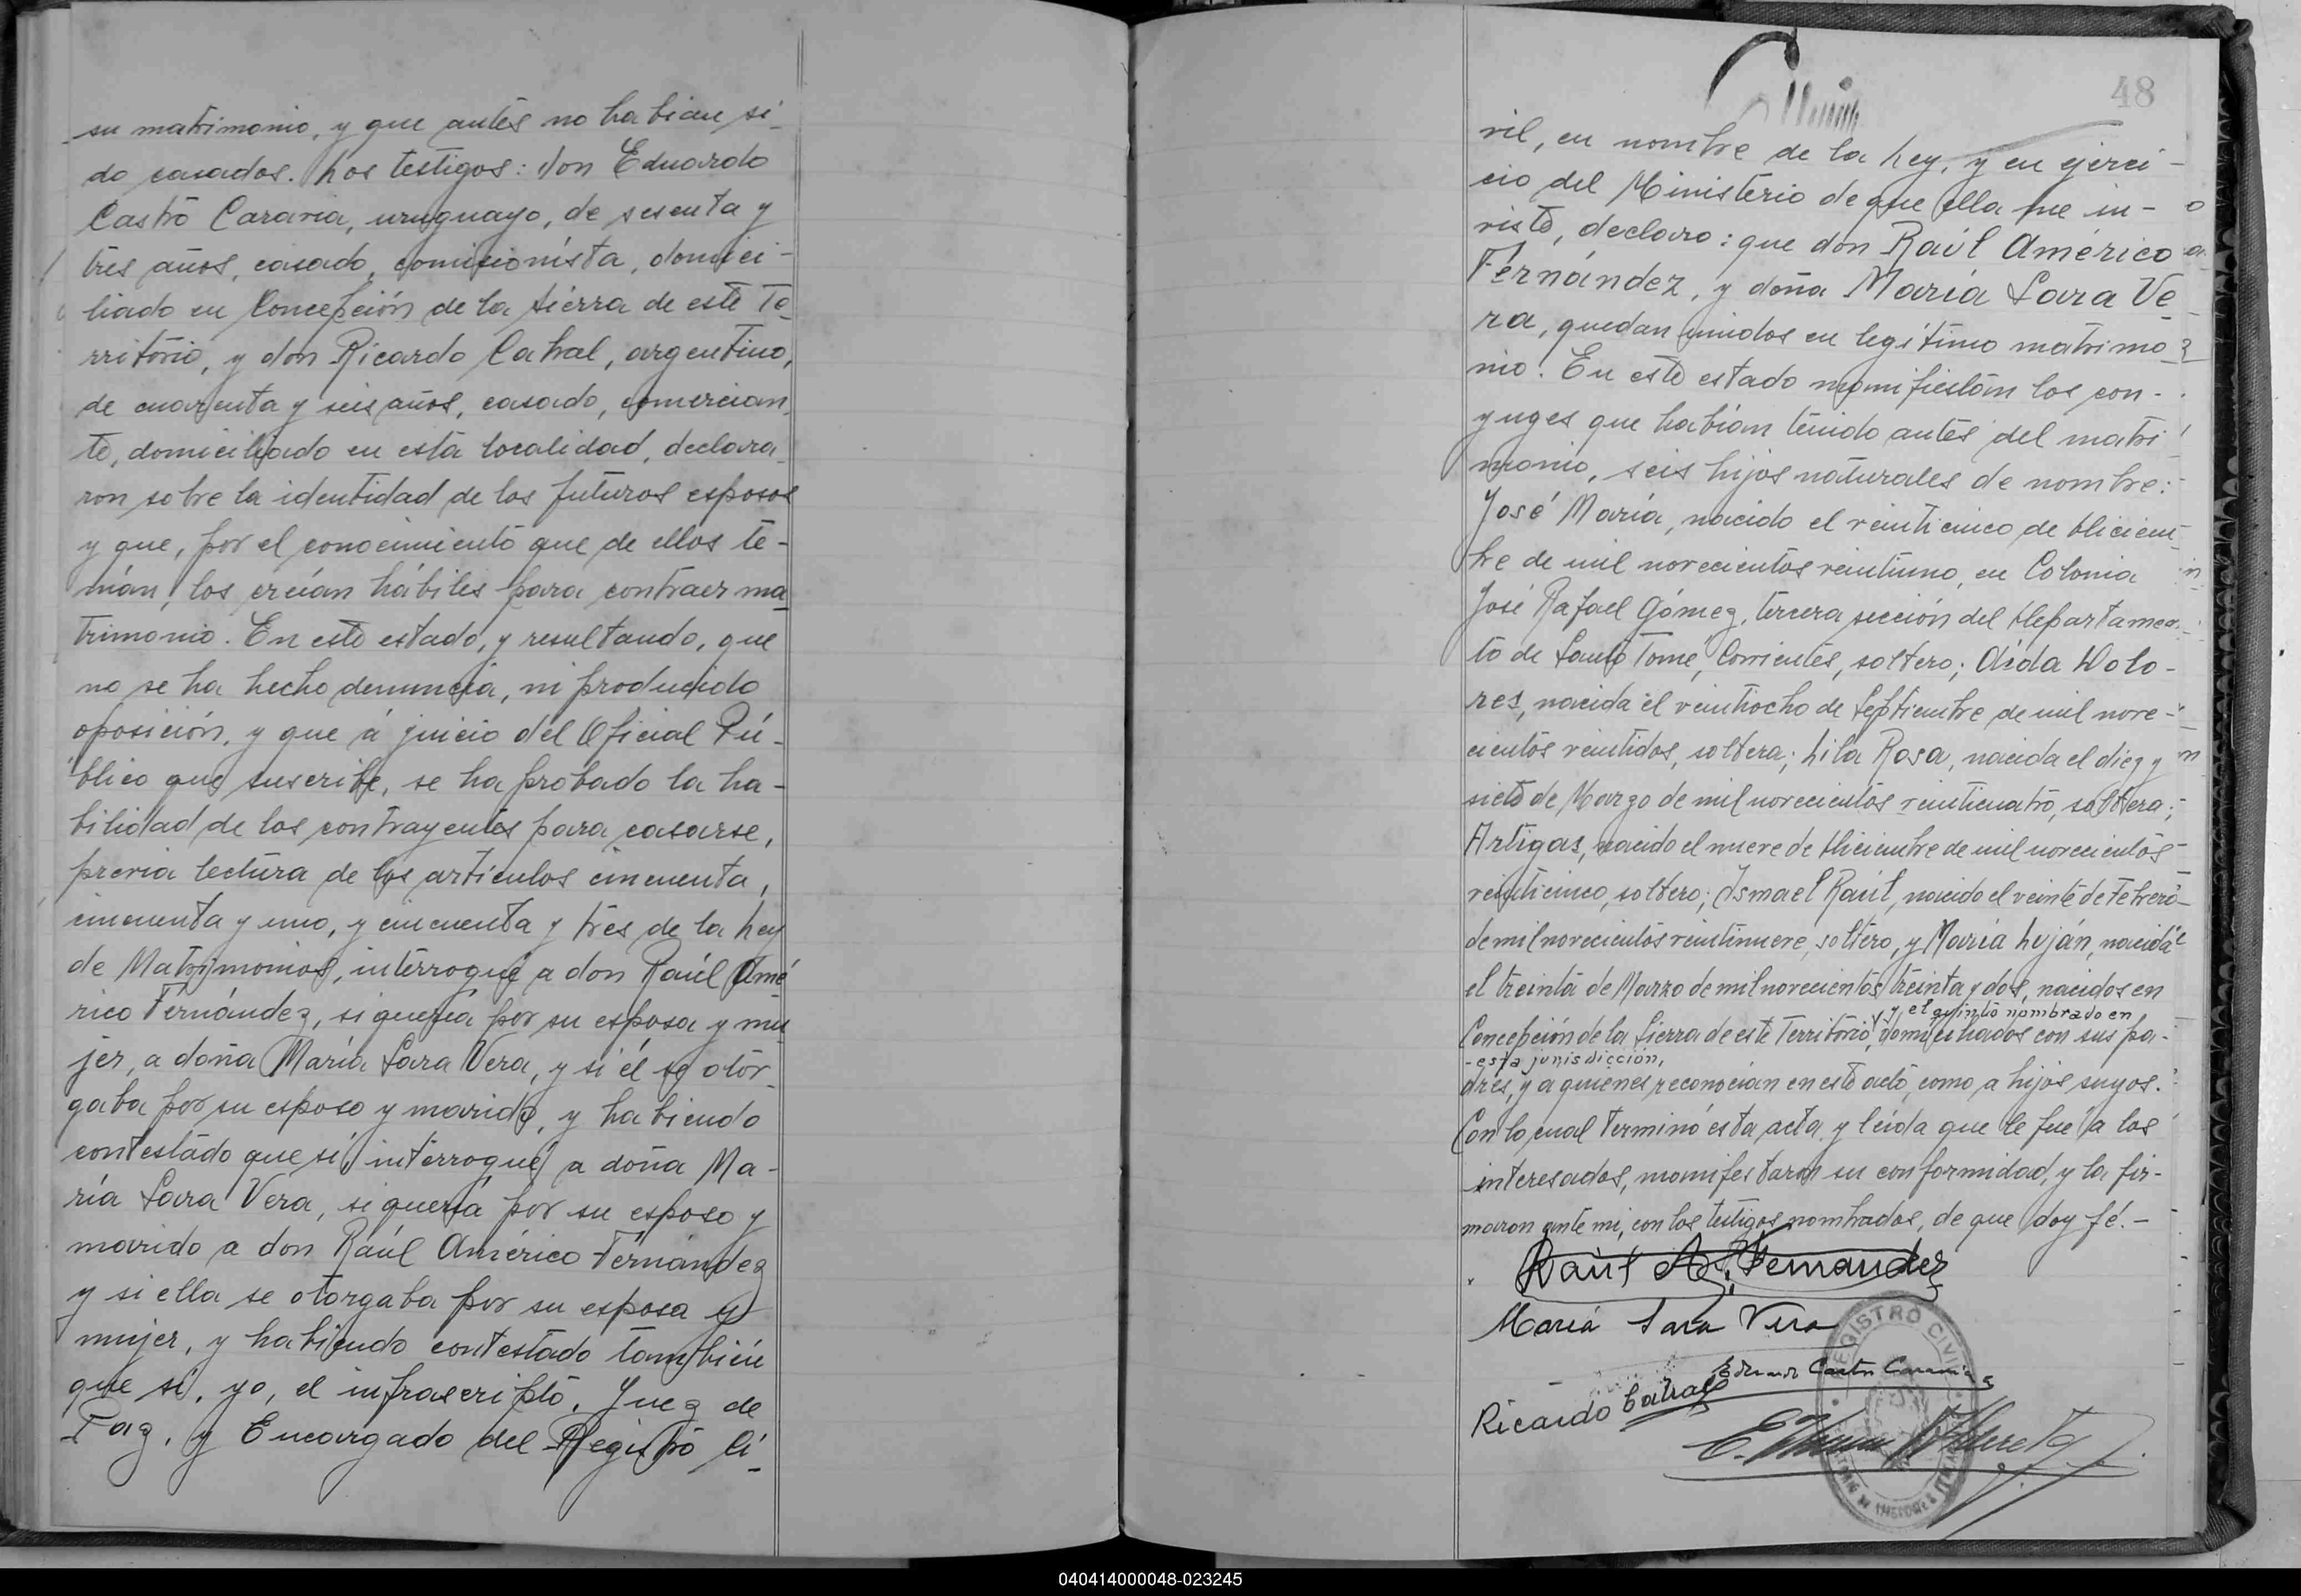 su matrimonio, y que antes no habian si-
do casados. Los testigos: don Eduardo
Castro Caravia, uruguayo, de sesenta y
tres años, casado, comisionista, domici-
liado en Concepción de la Sierra de este Te-
rritorio, y don Ricardo Cabral, argentino,
de cuarenta y seis años, casado, comercian-
te, domiciliado en esta localidad, declara-
ron sobre la identidad de los futuros esposos
y que, por el conocimiento que de ellos te-
nían, los creían hábiles para contraer ma-
trimonio. En este estado, y resultando, que
no se ha hecho denuncia, ni producido
oposición, y que á juicio del Oficial Pú-
blico que suscribe, se ha probado la ha-
bilidad de los contrayentes para casarse,
previa lectura de los artículos cincuenta,
cincuenta y uno, y cincuenta y tres de la Ley
de Matrimonios, interrogué a don Raúl Amé-
rico Fernández, si quería por su esposa y mu-
jer, a doña María Sara Vera, y si él se otor-
gaba por su esposo y marido, y habiendo
contestado que sí, interrogué a doña Ma-
ría Sara Vera, si quería por su esposo y
marido a don Raúl Américo Fernández
y si ella se otorgaba por su esposa y
mujer, y habiendo contestado también
que sí, yo, el infrascripto, Juez de
Paz, y Encargado del Registro Ci-
48
vil, en nombre de la Ley, y en ejerci-
cio del Ministerio de que ella me in-
viste, declaro: que don Raúl Américo
Fernández, y doña María Sara Ve-
ra, quedan unidos en legítimo matrimo-
nio. En este estado manifiestan los con-
yuges que habían tenido antes del matri-
monio, seis hijos naturales de nombre:
José María, nacido el veinticinco de Diciem-
bre de mil novecientos veintiuno, en Colonia
José Rafael Gómez, tercera sección del Departamen-
to de Santo Tomé, Corrientes, soltero; Aída Dolo-
res, nacida el veintiocho de Septiembre de mil nove-
cientos veintidos, soltera; Lila Rosa, nacida el diez y
siete de Marzo de mil novecientos veinticuatro, soltera;
Artigas, nacido el nueve de Diciembre de mil novecientos
veinticinco, soltero; Ismael Raúl, nacido el veinte de Febrero
de mil novecientos veintinueve, soltero, y María Luján, nacida
el treinta de Marzo de mil novecientos treinta y dos, nacidos en
y el quinto nombrado en
Concepción de la Sierra de este Territorio, domiciliados con sus pa-
-esta jurisdicción,
dres, y a quienes reconocían en este acto, como a hijos suyos.
Con lo cual terminó esta acta y leída que le fue a los
interesados, manifestaron su conformidad, y la fir-
maron ante mi, con los testigos nombrados, de que doy fé.-
Raúl A. Fernandez
María Sara Vera
Eduardo Castro Caravia
Ricardo Cabral
REGISTRO CIVIL
040414000048-023245